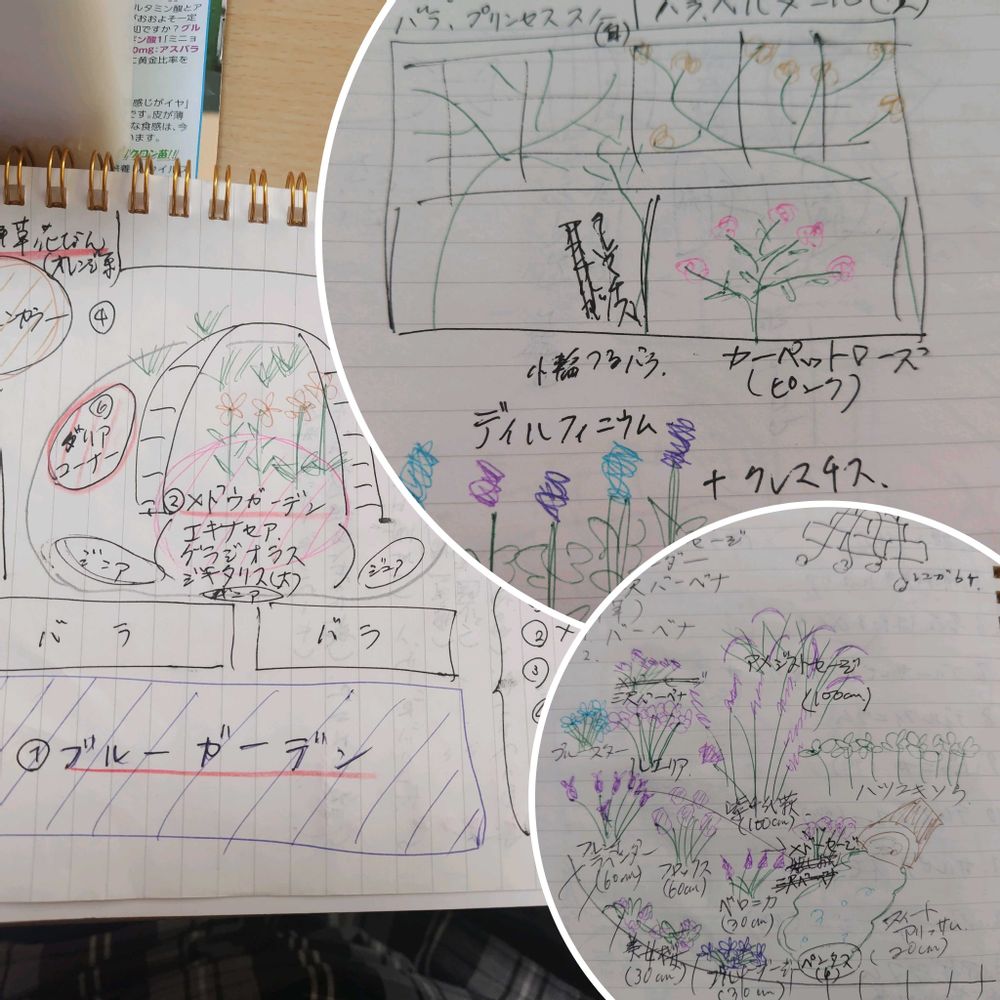 ルタミン酸とア
「おおよそ一定
知ですか？グル
ギン酸1「ミニョ
0mg:アスパラ
に黄金比率を
感じがイヤ」
です。皮が薄
な食感は、今
います。
クロン苗!!
草花だん
(オレンジ系)
ンカラー
④
⑥
ダリア
コーナー
②メドウガーデン
エキナセア.
グラジオラス
ジキタリス(大)
ジニア
ジニア
バラ
バラ
①ブルーガーデン
②メ
③
バラ、プリンセス
小輪つるバラ.
カーペットローズ
(ピンク)
ディルフィニウム
+クレマチス.
セージ
バーベナ
バーベナ
アメジストセージ
(100cm)
三尺バーベナ
ブルースター
ルエリア.
ハツユキソウ
(100cm)
ラベンダー
(60cm)
フロックス
(60cm)
メドーセージ
ベロニカ
(30cm)
スイート
アリッサム.
(20cm)
美女桜
(30cm)
ブルーセージ
(30cm)
ペンタス